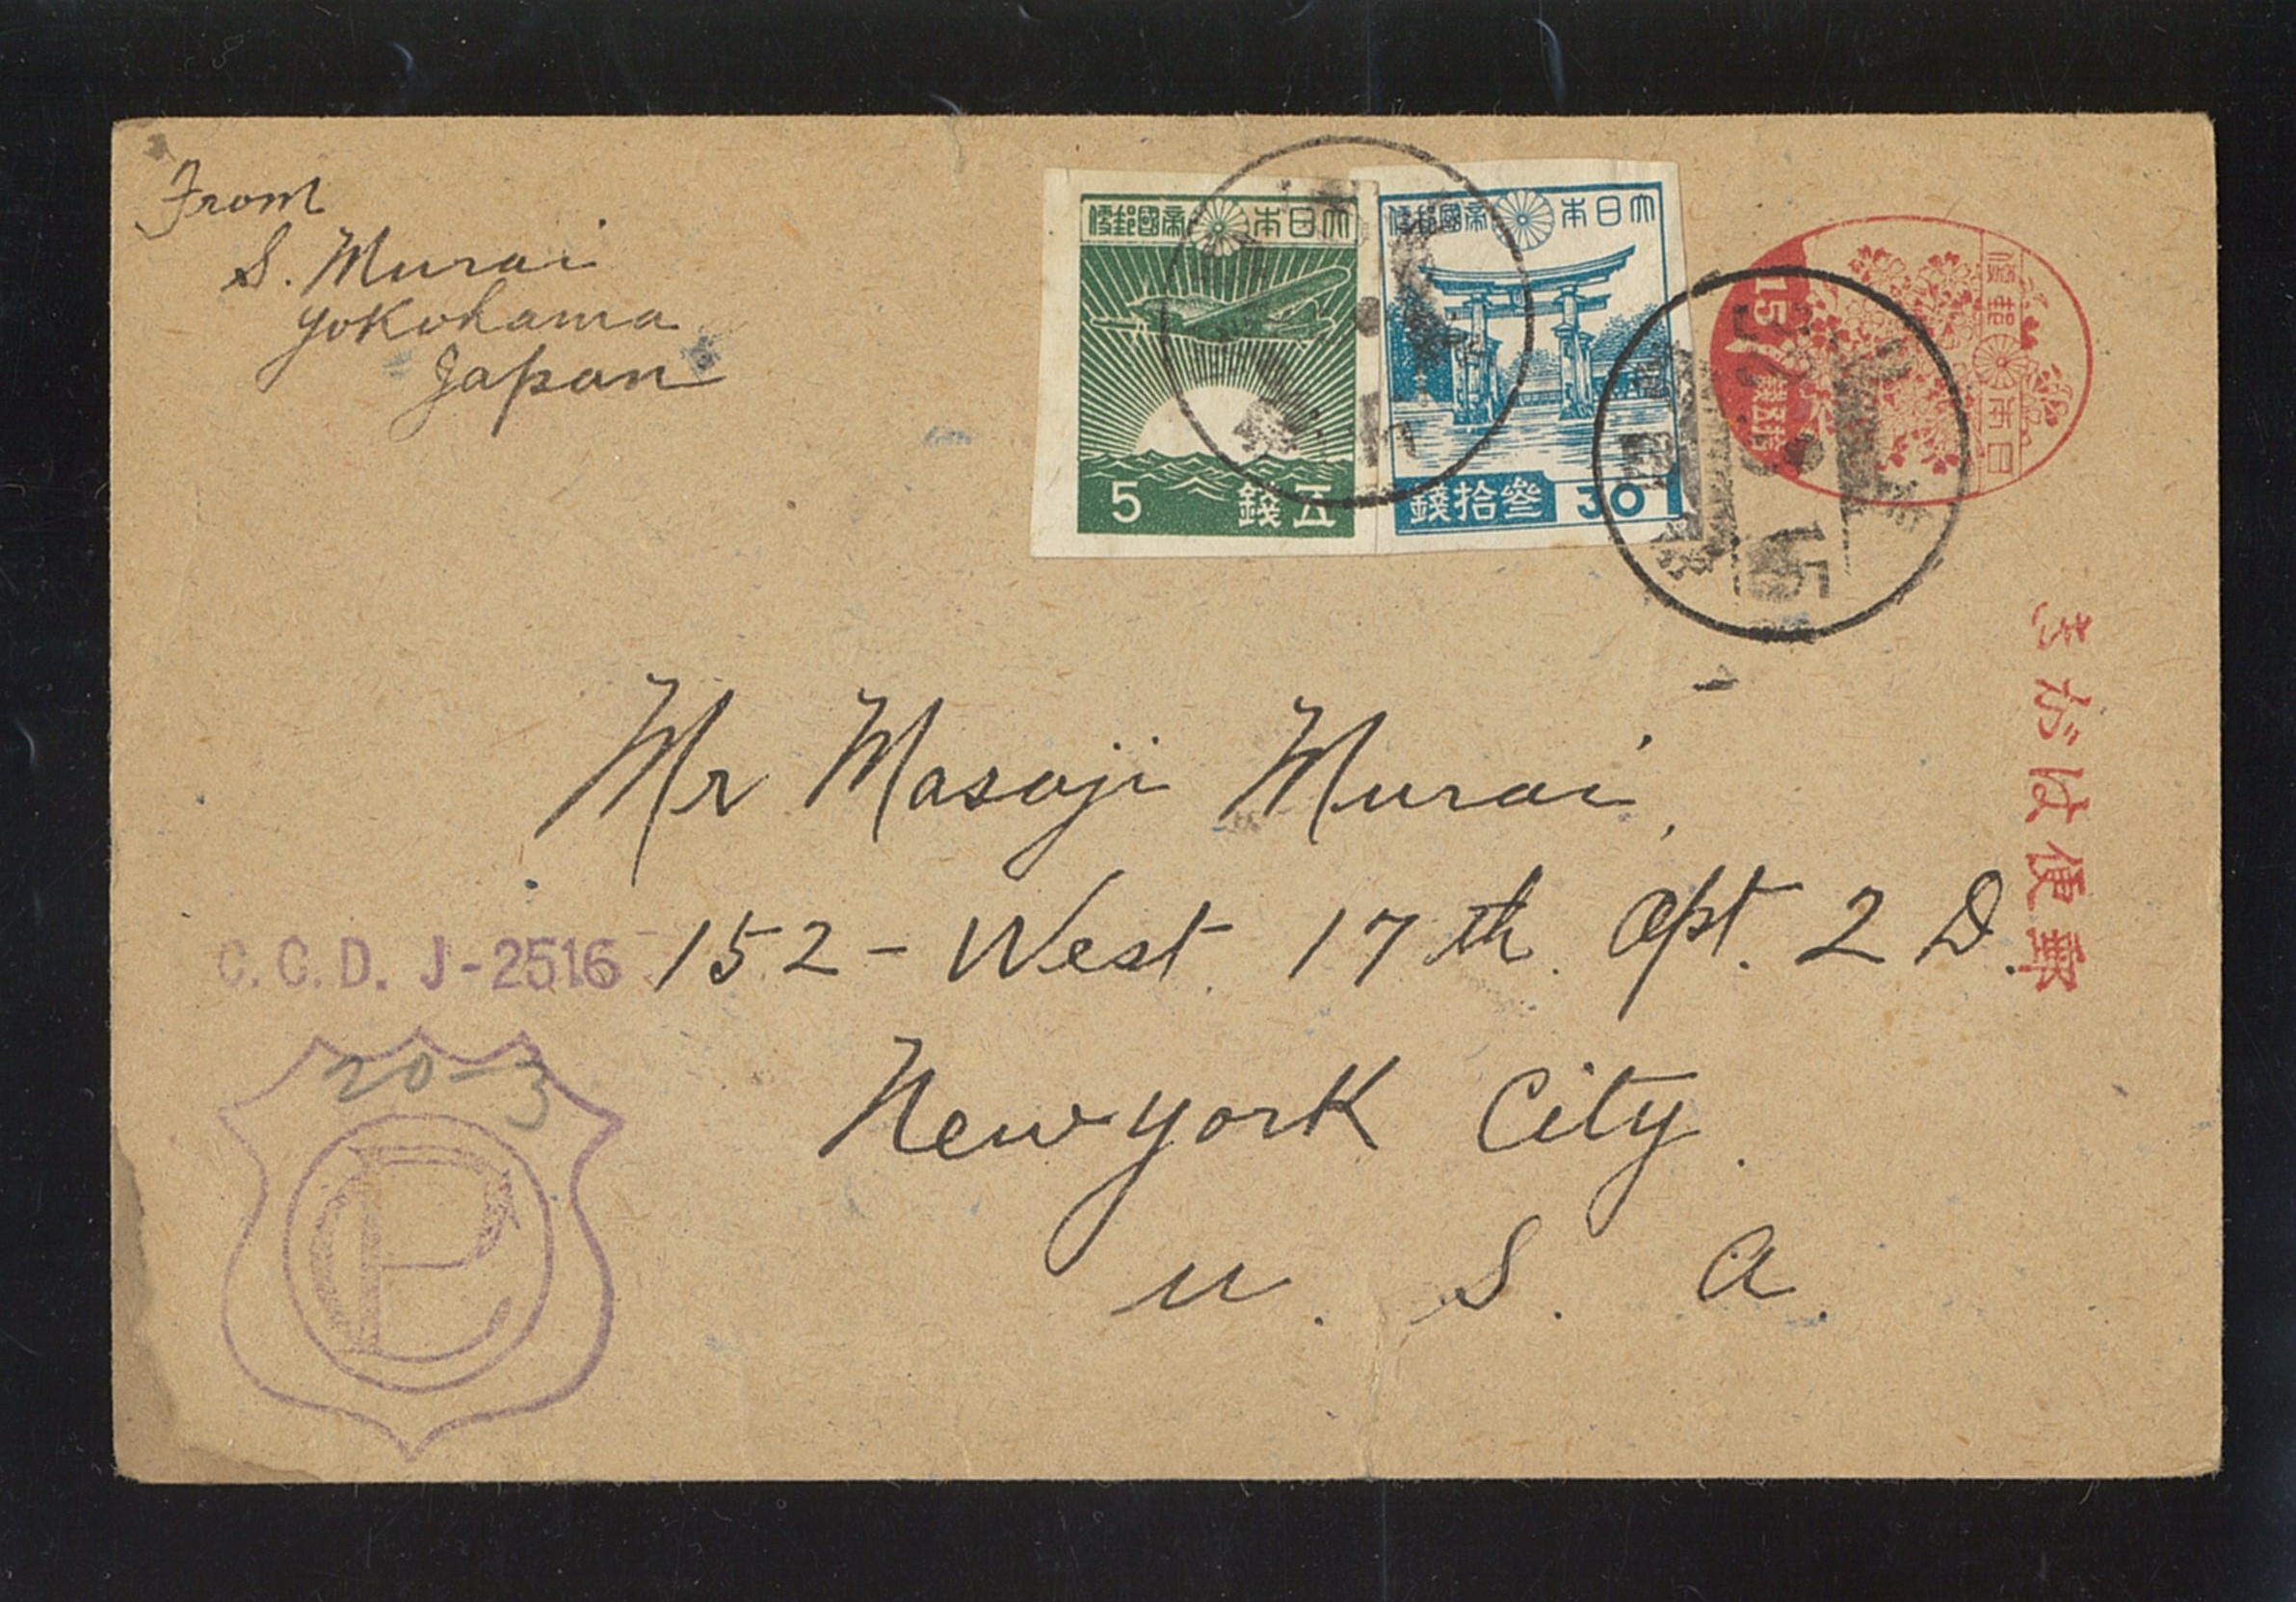 From
S. Murai
Yokohama
Japan
便郵國帝 本日大
5 錢五
便郵國帝 本日大
錢拾叄 30
15
錢五拾
便郵 本日
15
きがは便郵
Mr Masaji Murai,
152 - West. 17th. Apt. 2 D.
New York City.
U. S. A.
C. C. D. J-2516
20-3
CP